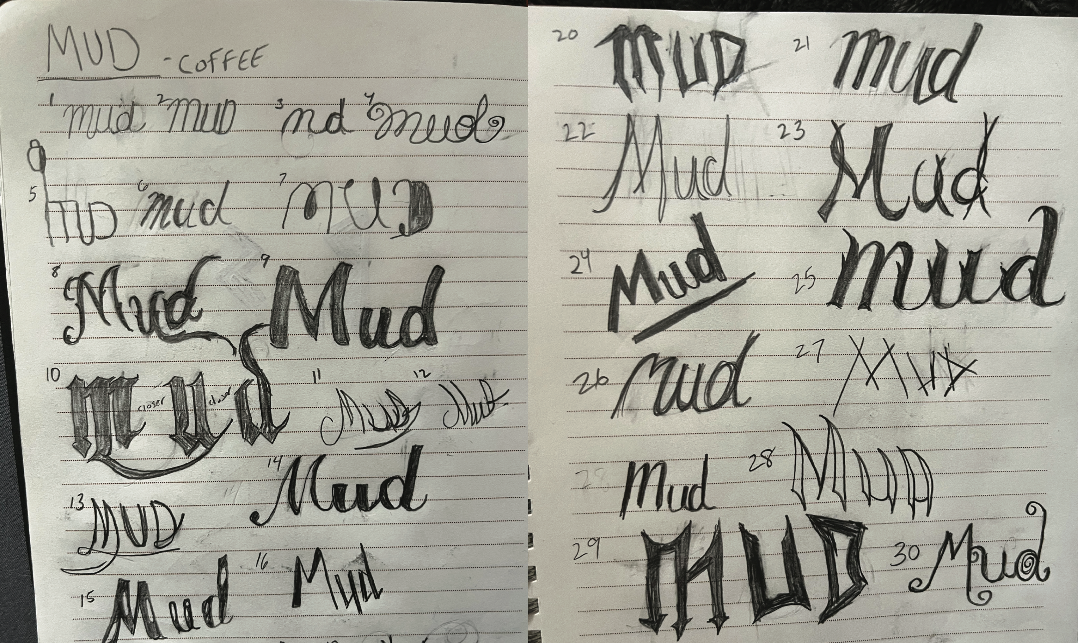 MUD - COFFEE
1 mud 2 MUD 3 md 4 mud
5 MUD 6 mud 7 MUD
8 Mud 9 Mud
10 mud closer closer 11 Mud 12 Mud
13 MUD 14 Mud
15 Mud 16 Mud
20 MUD 21 mud
22 Mud 23 Mud
24 Mud 25 mud
26 mud 27 MUD
28 Mud 28 MUD
29 MUD 30 Mud